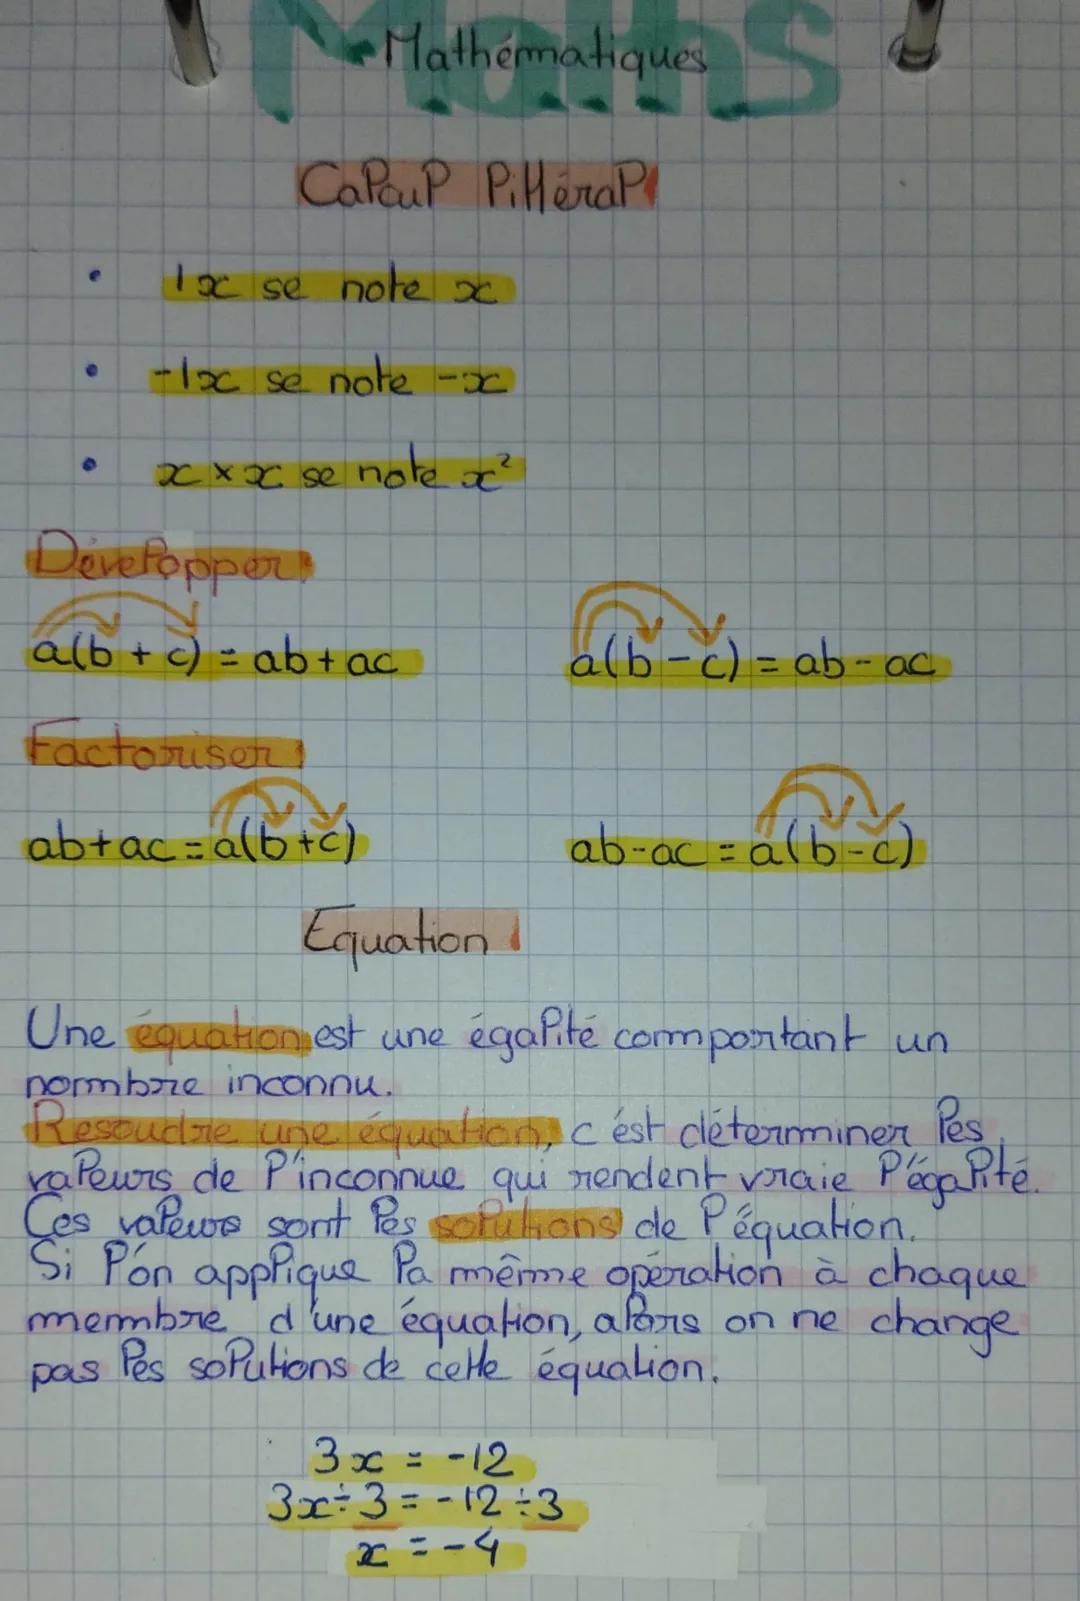 Maths
Mathématiques
Calcul littéral
• 1x se note x
• -1x se note -x
• x × x se note x²
Développer
a(b + c) = ab + ac a(b - c) = ab - ac
Factoriser
ab + ac = a(b + c) ab - ac = a(b - c)
Equation
Une équation est une égalité comportant un
nombre inconnu.
Resoudre une équation, c'est déterminer les
valeurs de l'inconnue qui rendent vraie l'égalité.
Ces valeurs sont les solutions de l'équation.
Si l'on applique la même opération à chaque
membre d'une équation, alors on ne change
pas les solutions de cette équation.
3x = -12
3x ÷ 3 = -12 ÷ 3
x = -4